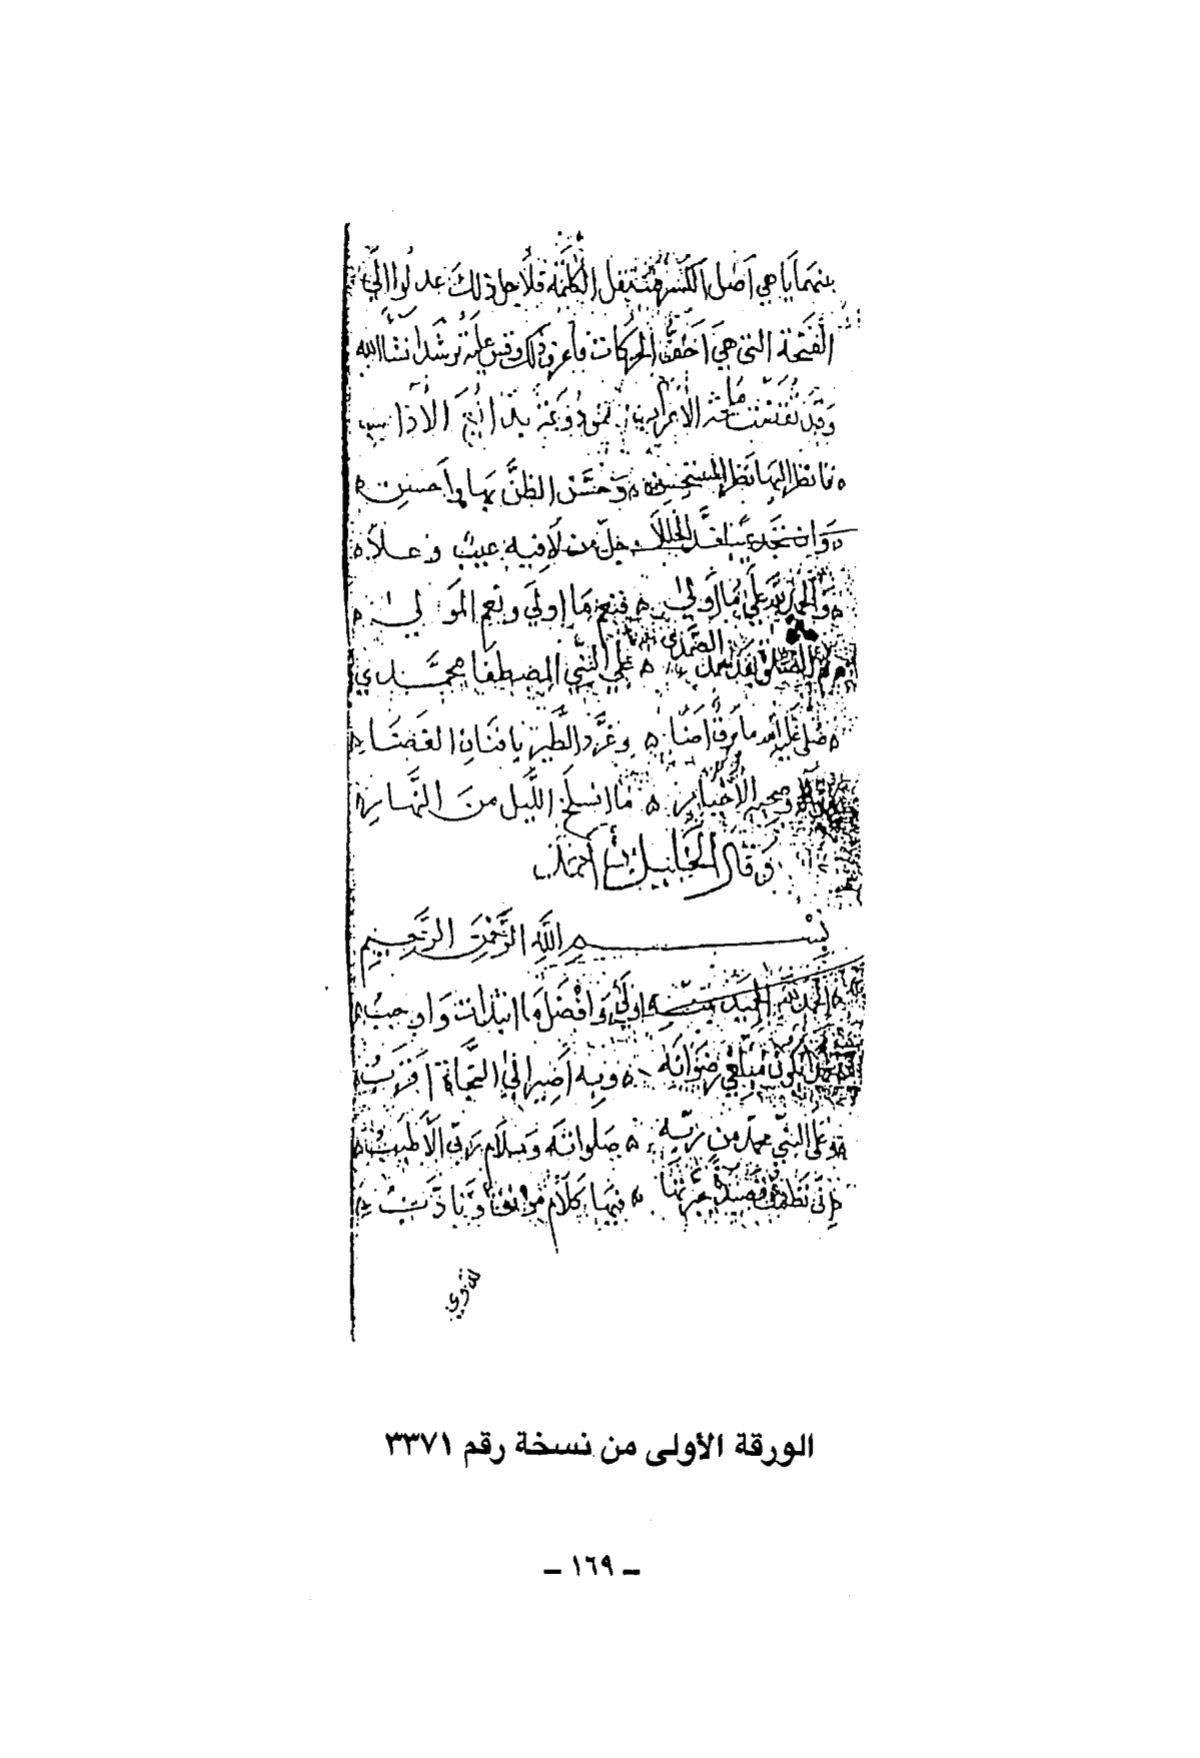 بينهما يا هي اصل الكسرة فتثقل الكلمة فلاجل ذلك عدلوا الى
الفتحة التي هي اخف الحركات فاعرف ذلك وقس عليه ترشد ان شا الله
وقد تقضت ملحة الاعراب مودوعة بدائع الاداب
فانظر اليها نظر المستحسن وحسن الظن بها واحسن
وان تجد عيبا فسد الخللا جل من لا فيه عيب وعلا
والحمد لله على ما اولى فنعم ما اولى ونعم المولى
ثم الصلوة بعد حمد الصمد على النبي المصطفا محمدي
صلى عليه الله ما برق اضا وغرد الطير بافنان الغضا
واله وصحبه الاخيار ما انسلخ الليل من النهار
وقال الخليل بن احمد
بسم الله الرحمن الرحيم
الحمد لله الحميد بمنه اولى وافضل ما ابتدات واوجب
رضوانه وبه اصير الى النجاة اقرب
وعلى النبي محمد من ربه صلواته وسلام ربي الاطيب
اني نظمت قصيدة حبرتها فيها كلام مونق وتادب
الورقة الأولى من نسخة رقم ٣٣٧١
– ١٦٩ –